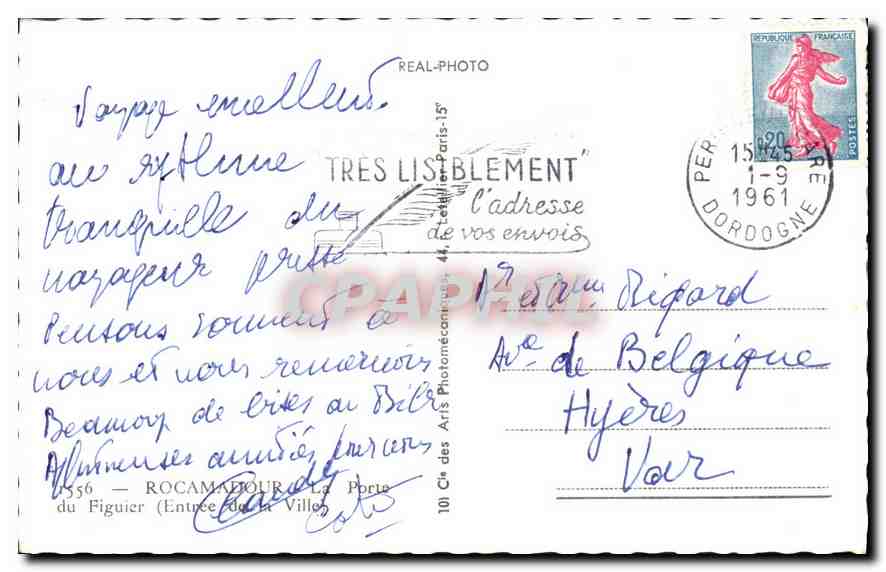 REAL-PHOTO
Voyage excellent
au rythme
tranquille du
voyageur
Pensons souvent à
vous et vous remercions
Beaucoup de bises au
amitiés pour vous
1556 — ROCAMADOUR - La Porte
du Figuier (Entrée de la Ville)
101 Cie des Arts Photomécaniques, 44, r. Letellier Paris-15e
"TRÈS LISIBLEMENT"
l'adresse
de vos envois
REPUBLIQUE FRANÇAISE
0,20
POSTES
PER GARE
15H45
1-9
1961
DORDOGNE
CPAPHIL
Mr et Mme Rigard
Ave de Belgique
Hyères
Var